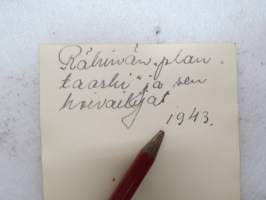 Rähinän "plan
taashi" ja sen
hoivaabijat
1943.